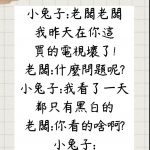 小兔子:老闆老闆
我昨天在你這
買的電視壞了!
老闆:什麼問題呢?
小兔子:我看了一天
都只有黑白的
老闆:你看的啥啊?
小兔子: